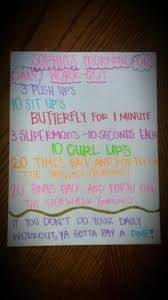 SOPHIA'S MORNING FOR
DAILY WORK-OUT
3 PUSH UP'S
10 SIT UP'S
BUTTERFLY FOR 1 MINUTE
3 SUPERMAN'S -10 SECONDS EACH
10 CURL UP'S
20 TIMES BACK AND FORTH ON
THE
20 TIMES BACK AND FORTH ON
THE
IF YOU DON'T DO YOUR DAILY
WORKOUT, YA GOTTA PAY A DIME!